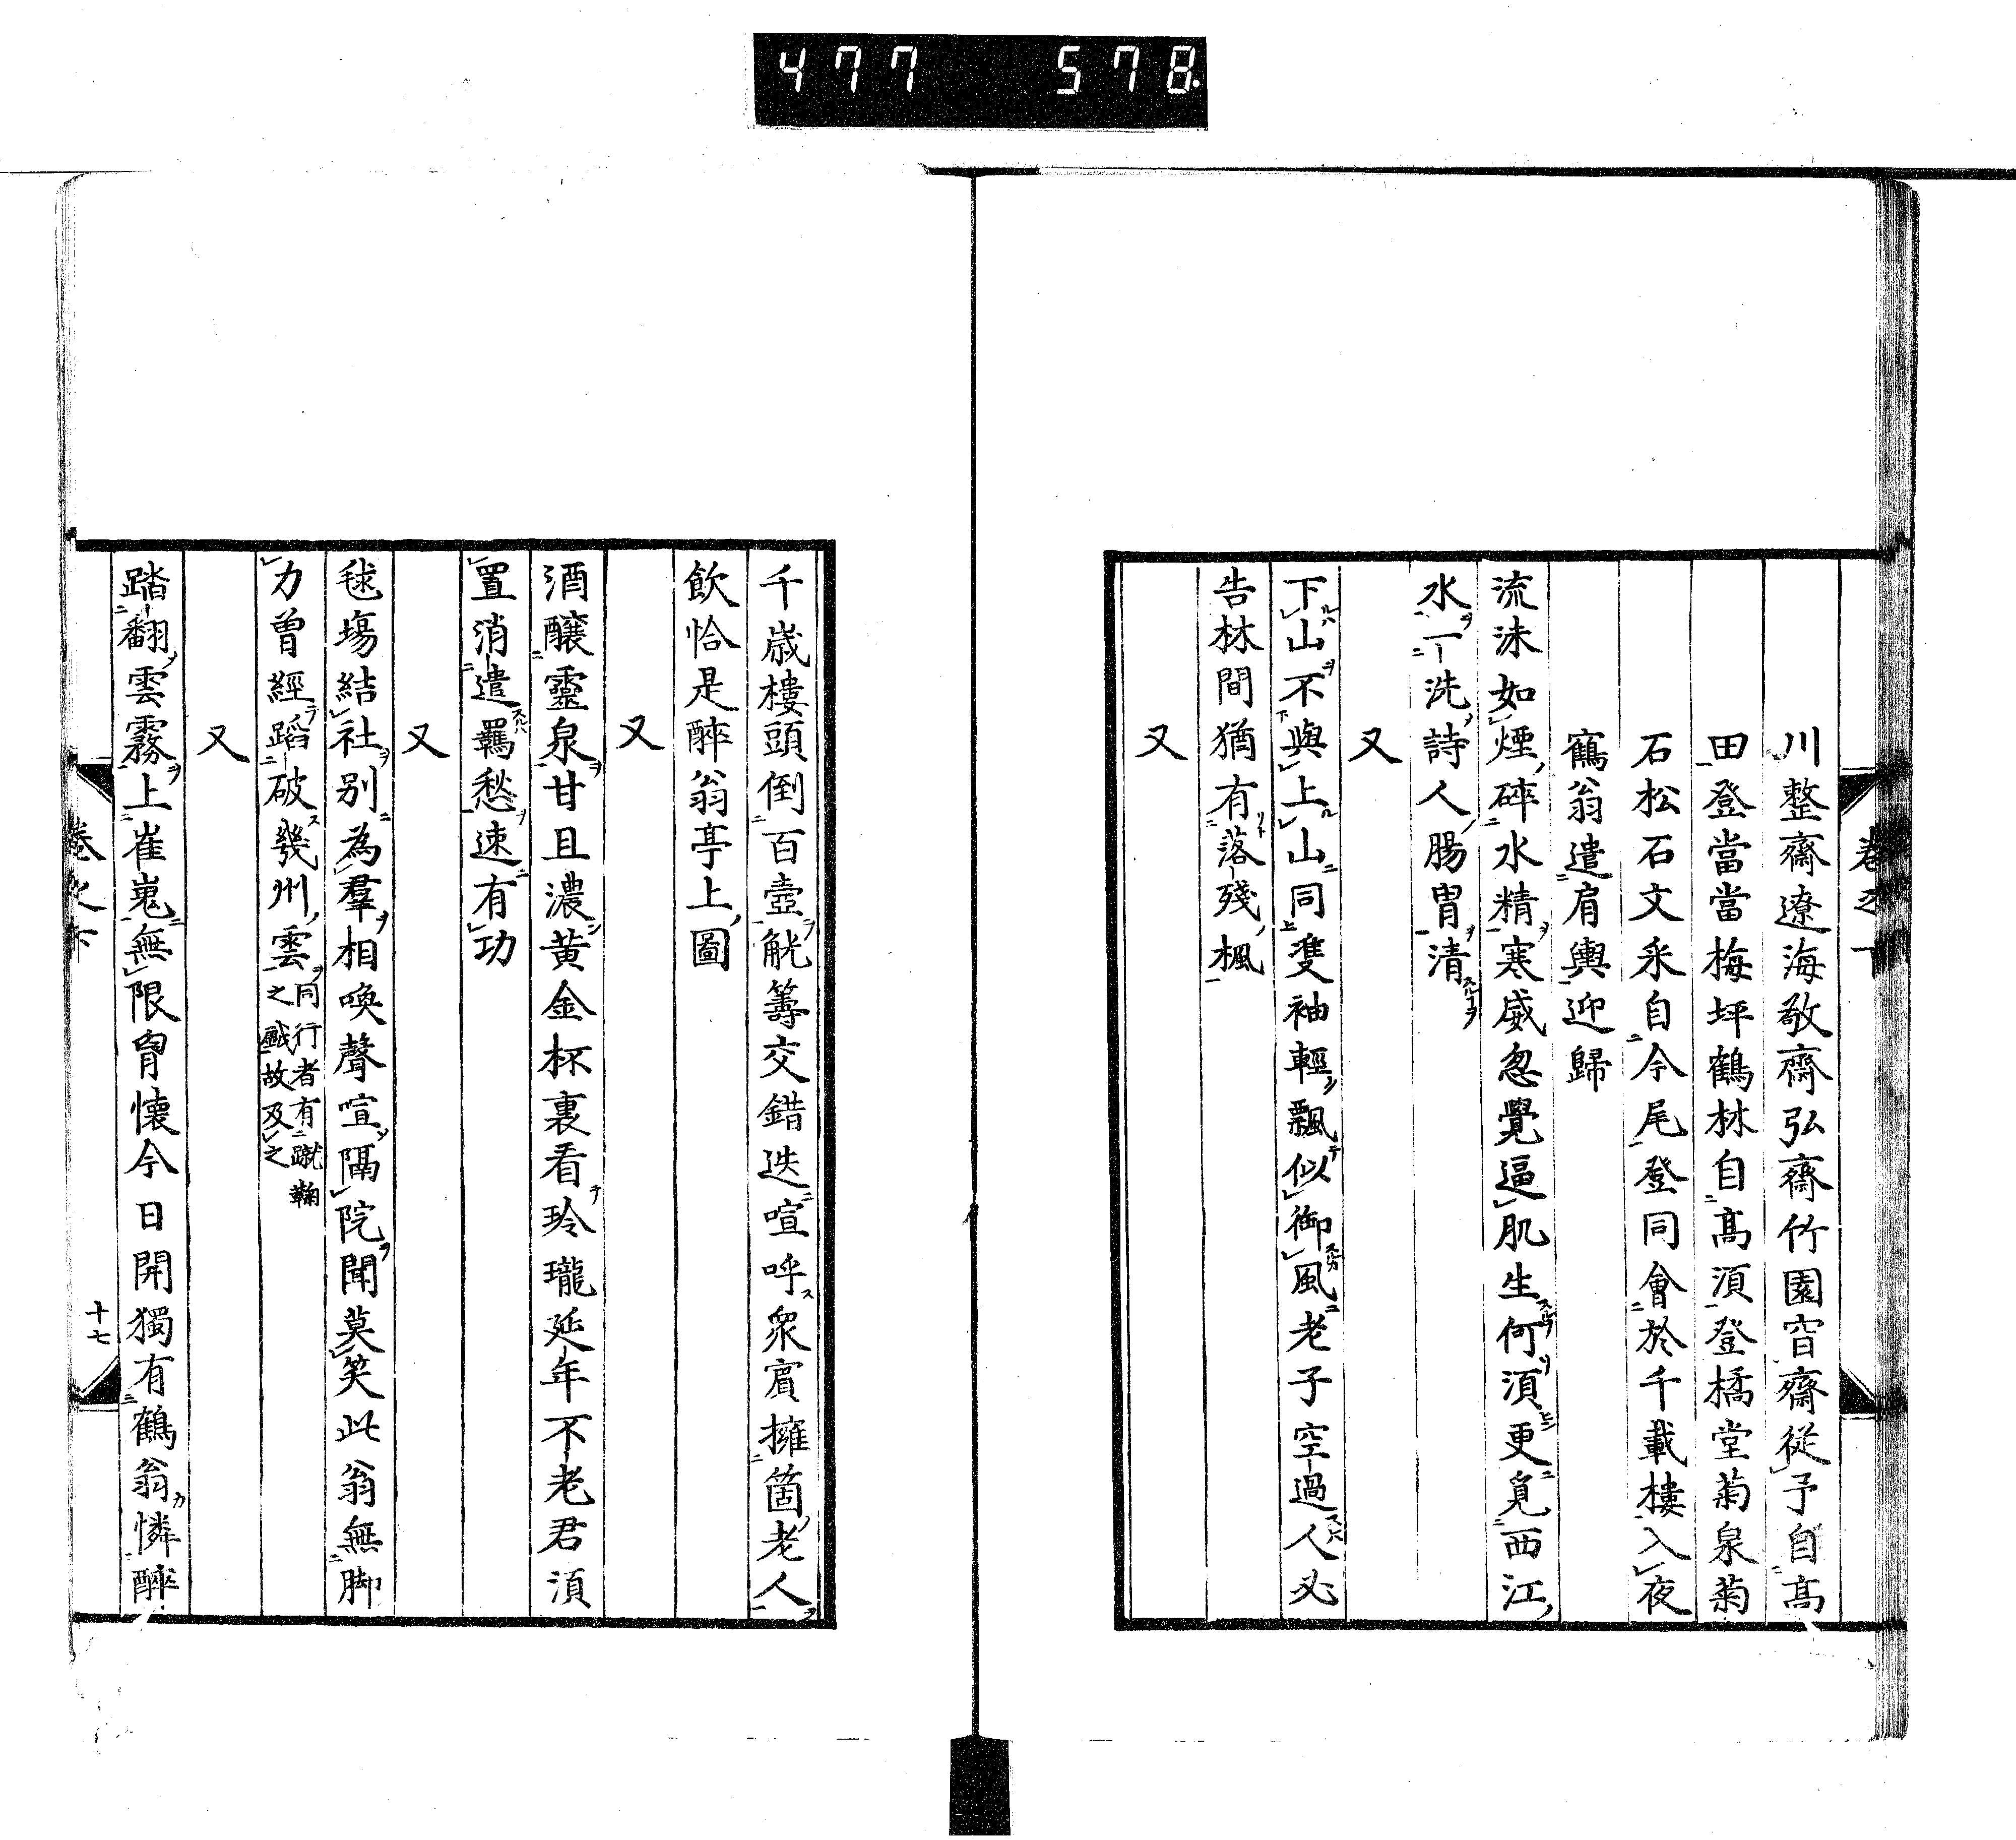 477 578.
川整齋遼海敬齋弘齋竹園宿齋從予自髙
田登當當梅坪鶴林自髙湏登橘堂菊泉菊
石松石文釆自今尾登同會於千載樓入夜
鶴翁遣肩輿迎歸
流沫如煙碎水精寒威忽覺逼肌生何湏更覓西江
水一洗詩人腸胃清
又
下山不與上山同隻袖輕飄似御風老子空過人必
告林間猶有落殘楓
又
千歳樓頭倒百壺觥籌交錯迭喧呼衆賓擁箇老人
飲恰是醉翁亭上圖
又
酒釀靈泉甘且濃黄金杯裏看玲瓏延年不老君湏
置消遣羈愁速有功
又
毬塲結社别為羣相喚聲喧隔院聞莫笑此翁無脚
力曽經蹈破幾州雲同行者有蹴鞠
之戲故及之
又
踏翻雲霧上崔嵬無限胷懐今日開獨有鶴翁憐醉
卷之下
十七